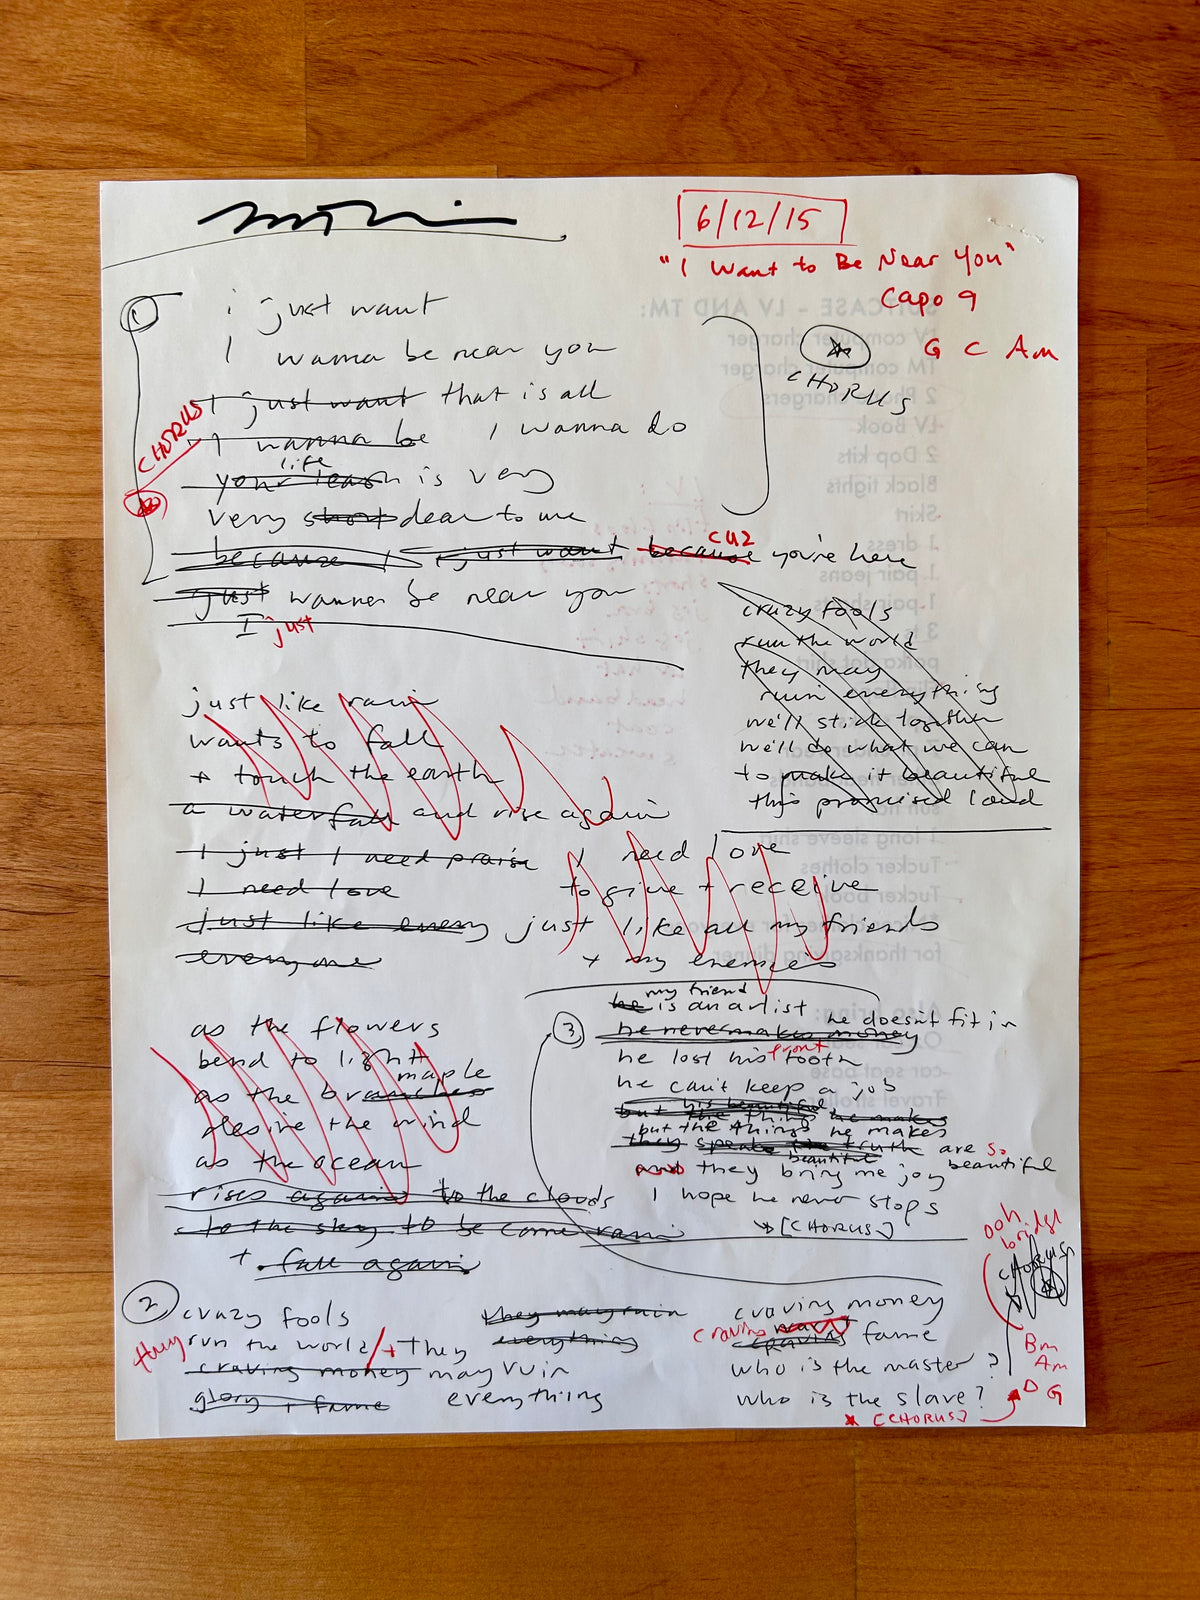 6/12/15
"I Want to Be Near You"
Capo 9
G C Am
1
i just want
I wanna be near you
I just want that is all
I wanna be I wanna do
life
your is very
very short dear to me
cuz
because I just want because you're here
just wanna be near you
I just
CHORUS
CHORUS
crazy fools
run the world
they may
ruin everything
we'll stick together
we'll do what we can
to make it beautiful
this promised land
just like rain
wants to fall
+ touch the earth
a waterfall and rise again
I just I need praise I need love
I need love to give + receive
just like every just like all my friends
everyone + my enemies
as the flowers
bend to light
maple
as the branches
desire the wind
as the ocean
rises again to the clouds
to the sky to become rain
+ fall again
3
my friend
he is an artist he doesn't fit in
he never makes money
front
he lost his tooth
he can't keep a job
his beautiful
but the things he makes
but the things he makes
they speak the truth are so
beautiful beautiful
and they bring me joy
I hope he never stops
[CHORUS]
ooh
bridge
CHORUS
2
crazy fools
they run the world / + they
craving money may ruin
glory + fame everything
they may ruin
everything
craving money
craving craving fame
who is the master?
who is the slave?
[CHORUS]
Bm
Am
D G
SUITCASE - LV AND TM:
LV computer charger
TM computer charger
2 Phone chargers
LV Book
2 Dop kits
Black tights
Skirt
1 dress
1 pair jeans
1 long sleeve shirt
Tucker clothes
Tucker book
for thanksgiving dinner
car seat base
Travel stroller